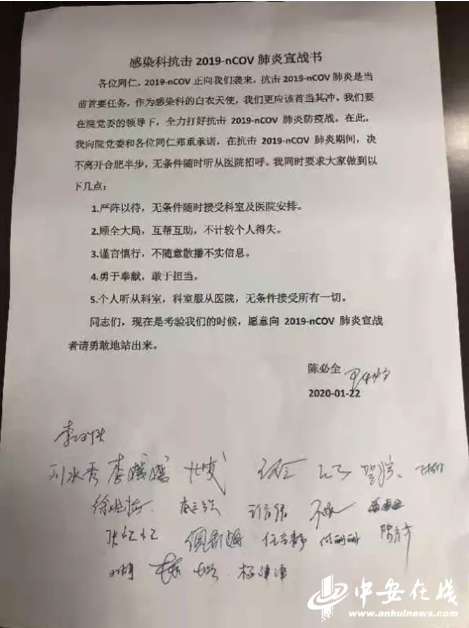 感染科抗击 2019-nCOV 肺炎宣战书
各位同仁，2019-nCOV 正向我们袭来，抗击 2019-nCOV 肺炎是当
前首要任务，作为感染科的白衣天使，我们更应该首当其冲，我们要
在院党委的领导下，全力打好抗击 2019-nCOV 肺炎防疫战。在此，
我向院党委和各位同仁郑重承诺，在抗击 2019-nCOV 肺炎期间，决
不离开合肥半步，无条件随时听从医院招呼。我同时要求大家做到以
下几点：
1.严阵以待，无条件随时接受科室及医院安排。
2.顾全大局，互帮互助，不计较个人得失。
3.谨言慎行，不随意散播不实信息。
4.勇于奉献，敢于担当。
5.个人听从科室，科室服从医院，无条件接受所有一切。
同志们，现在是考验我们的时候，愿意向 2019-nCOV 肺炎宣战
者请勇敢地站出来。
陈必全
2020-01-22
刘水秀 李媛媛
中安在线
www.anhuinews.com